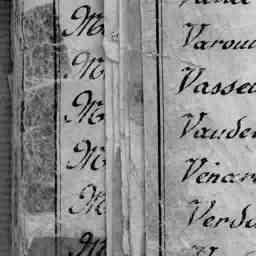 M
M
M
M
M
M
Varou
Vasse
Vaude
Vénar
Verdu